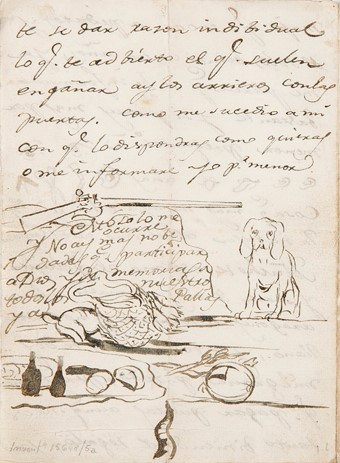 te se dar razon indibidual
lo q.ᵉ te adbierto el q.ᵉ suelen
engañar ay los arrieros con las
puertas. como me sucedio a mi
con q.ᵉ lo dispondras como quieras
o me informare yo p.ʳ menor.
Esto solo me
ocurre
y No ay mas nobe
dades q.ᵉ participar
a Dios de memorias a
todos nuestro
y a